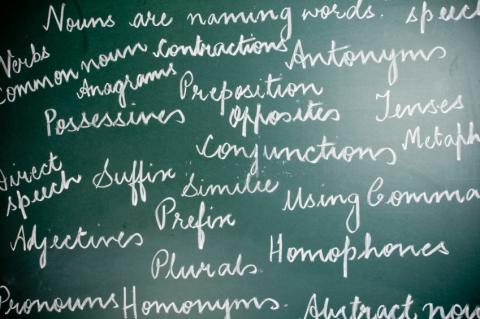 Nouns are naming words. speech
Verbs
common noun contractions Antonyms
Anagrams Preposition
Possessives opposites Tenses
Conjunctions Metaph
Direct
speech Suffix Similie Using Comma
Prefix
Adjectives Homophones
Plurals
Pronouns Homonyms. Abstract nou